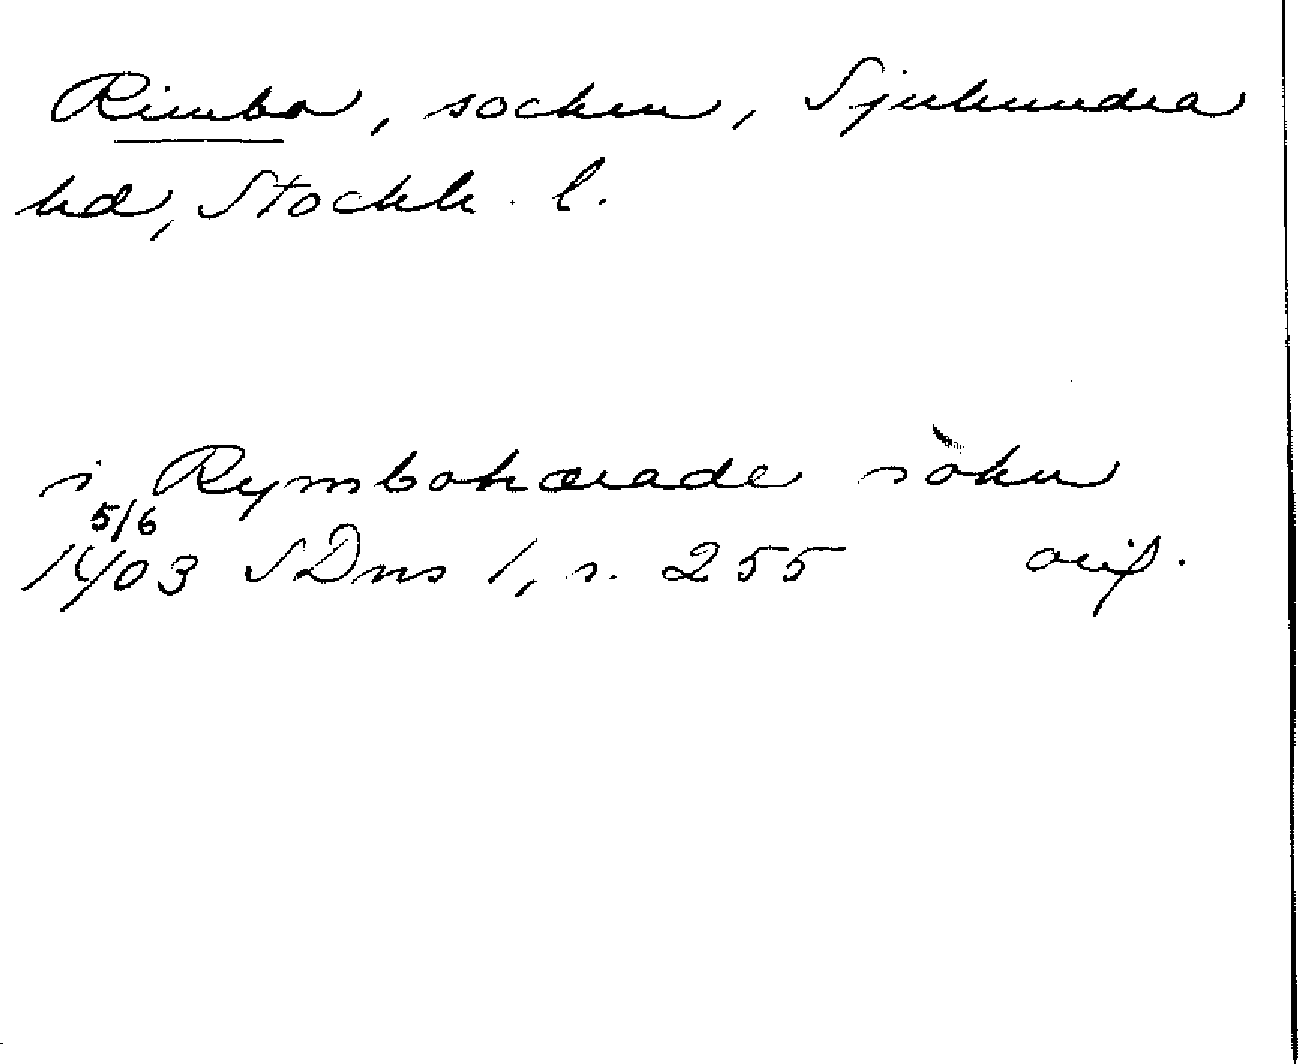 Rimbo, socken, Sjuhundra
hd, Stockh. l.
i Rymbohærade sokn
5/6
1403 SDns 1, s. 255 orig.